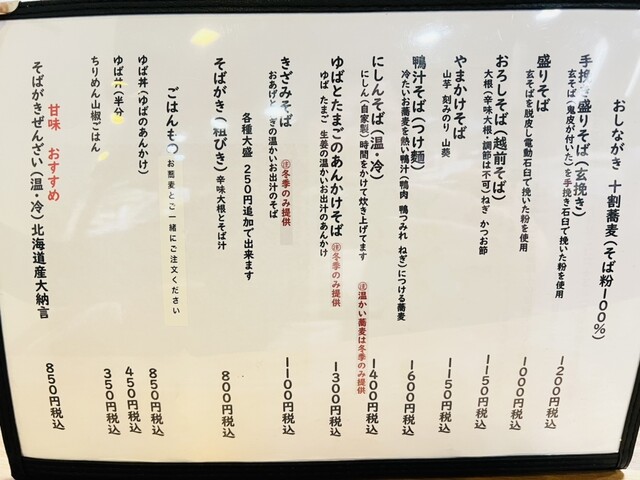 おしながき 十割蕎麦(そば粉100%)
手挽き盛りそば(玄挽き) 1200円税込
玄そば(鬼皮が付いた)を手挽き石臼で挽いた粉を使用
盛りそば 1000円税込
玄そばを脱皮し電動石臼で挽いた粉を使用
おろしそば(越前そば) 1150円税込
大根(辛味大根・調節は不可)ねぎ かつお節
やまかけそば 1150円税込
山芋 刻みのり 山葵
鴨汁そば(つけ麺) 1600円税込
冷たいお蕎麦を熱い鴨汁(鴨肉 鴨つみれ ねぎ)につける蕎麦
にしんそば(温・冷) 1400円税込
にしん(自家製)時間をかけて炊き上げてます
㊟温かい蕎麦は冬季のみ提供
ゆばとたまごのあんかけそば ㊟冬季のみ提供 1300円税込
ゆば たまご 生姜の温かいお出汁のあんかけ
きざみそば ㊟冬季のみ提供 1100円税込
おあげとねぎの温かいお出汁のそば
各種大盛 250円追加で出来ます
そばがき(粗びき)辛味大根とそば汁 800円税込
ごはんもの お蕎麦とご一緒にご注文ください
ゆば丼(ゆばのあんかけ) 850円税込
ゆば丼(半分) 450円税込
ちりめん山椒ごはん 350円税込
甘味 おすすめ
そばがきぜんざい(温・冷)北海道産大納言 850円税込